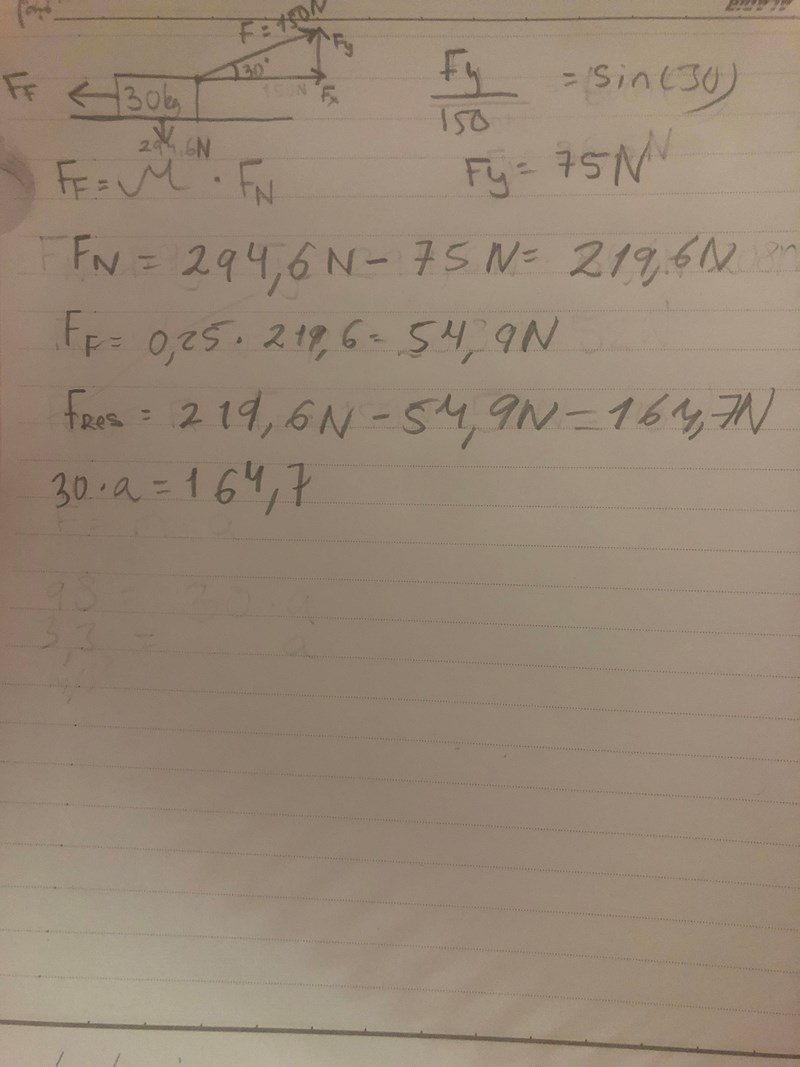 F = 150N
Fy
30°
FF
30kg
Fx
294,6N
Fy / 150 = sin(30)
FF = μ · FN
Fy = 75N
FN = 294,6N - 75N = 219,6N
FF = 0,25 · 219,6 = 54,9N
FRes = 219,6N - 54,9N = 164,7N
30 · a = 164,7
F = m · a
98 = 30 · a
3,3 = a